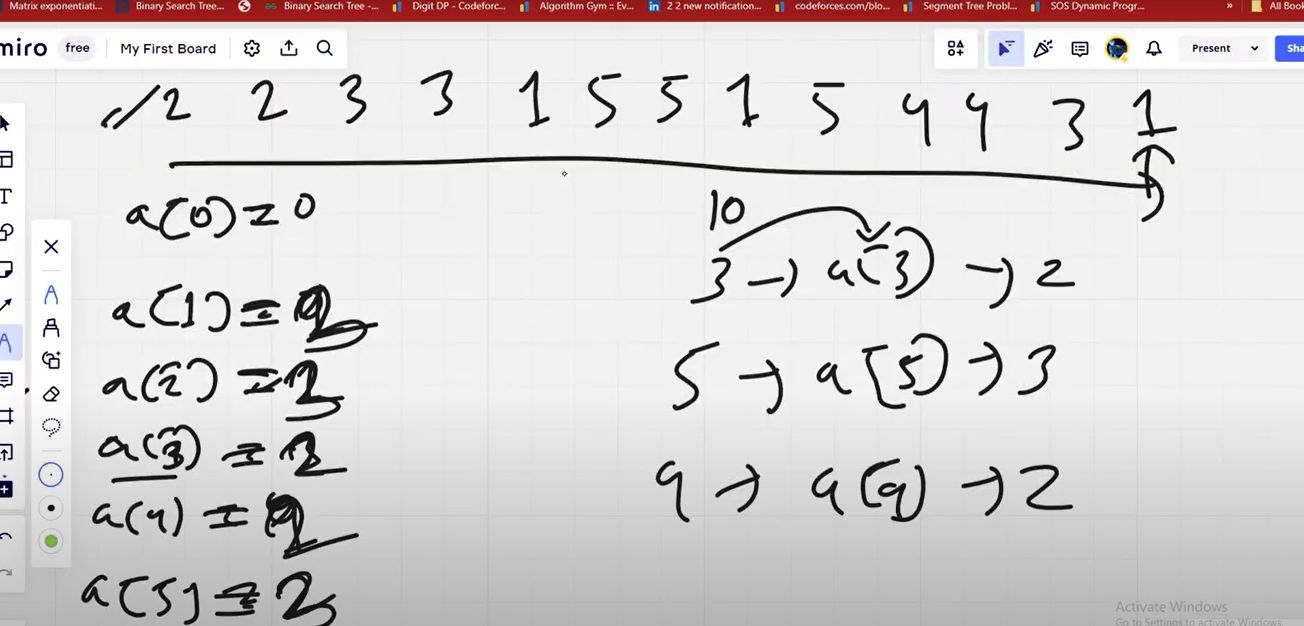 Matrix exponentiati... Binary Search Tree... Binary Search Tree -... Digit DP - Codeforc... Algorithm Gym :: Ev... 2 2 new notification... codeforces.com/blo... Segment Tree Probl... SOS Dynamic Progr... » All Book
miro free My First Board Present Sha
2 2 3 3 1 5 5 1 5 4 4 3 1
a(0) = 0
10
3 → a(3) → 2
a[1] =
a(2) =
5 → a[5] → 3
a(3) = 2
4 → a(4) → 2
a(4) =
a[5] =
Activate Windows
Go to Settings to activate Windows.